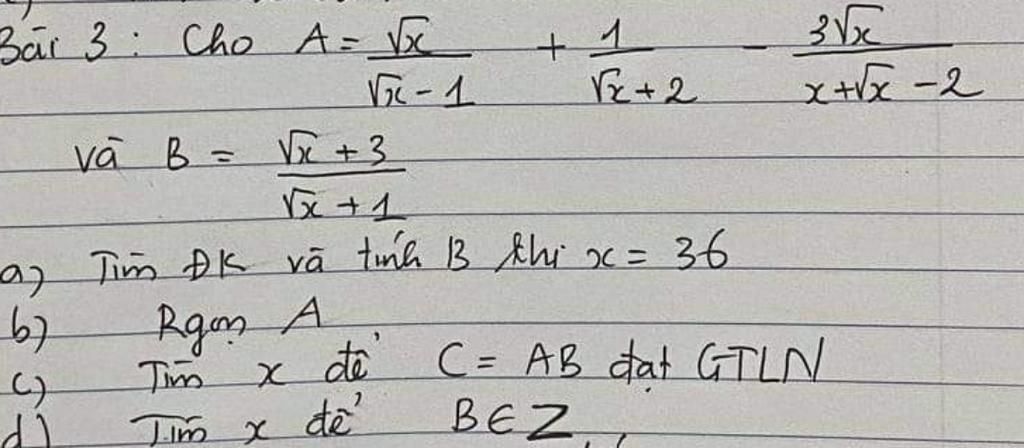 Bài 3 : Cho A = √x / (√x - 1) + 1 / (√x + 2) - 3√x / (x + √x - 2)
và B = (√x + 3) / (√x + 1)
a) Tìm ĐK và tính B khi x = 36
b) Rgọn A
c) Tìm x để C = AB đạt GTLN
d) Tìm x để B ∈ Z